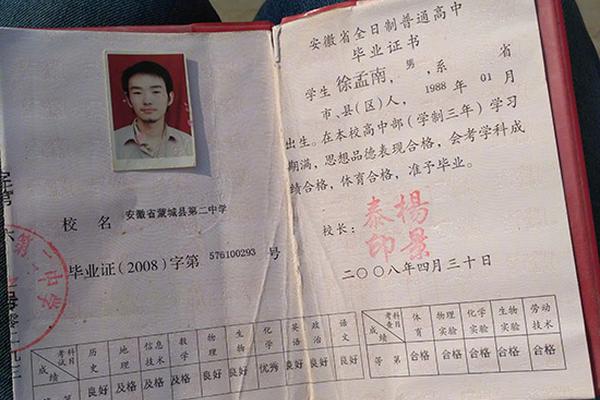 校名 安徽省蒙城县第二中学
毕业证(2008)字第 576100293 号
考试科目 历史 地理 信息技术 数学 物理 生物 化学 英语 政治 语文
成绩 良好 及格 及格 及格 良好 良好 优秀 良好 良好 良好
安徽省全日制普通高中
毕业证书
学生 徐孟南，男，系 省
市、县(区)人，1988 年 01 月
出生。在本校高中部(学制三年)学习
期满，思想品德表现合格，会考学科成
绩合格，体育合格，准予毕业。
校长：
杨景泰印
二〇〇八年四月三十日
考查科目 体育 物理实验 化学实验 生物实验 劳动技术
成绩
等第 合格 合格 合格 合格 合格